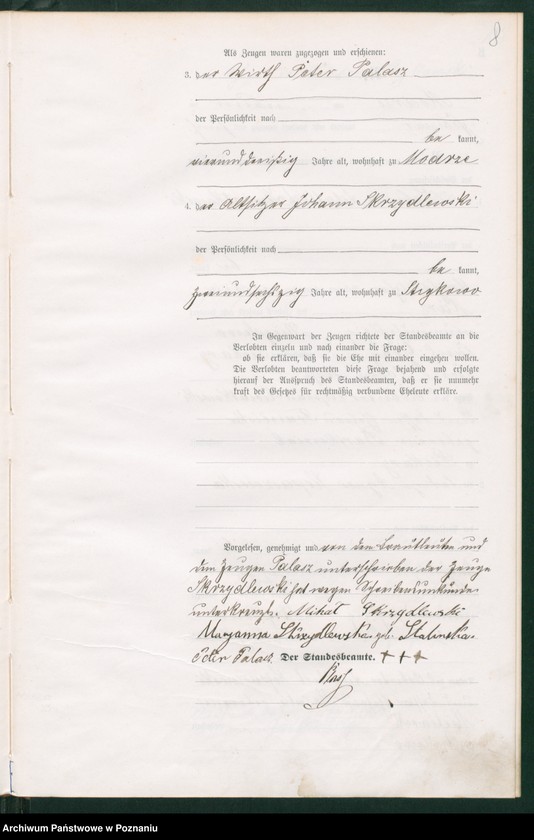 8
Als Zeugen waren zugezogen und erschienen:
3. der Wirth Peter Palasz
der Persönlichkeit nach
be kannt,
vierunddreißig Jahre alt, wohnhaft zu Modrze
4. der Altsitzer Johann Skrzydlewski
der Persönlichkeit nach
be kannt,
zweiundsechszig Jahre alt, wohnhaft zu Strykowo
In Gegenwart der Zeugen richtete der Standesbeamte an die
Verlobten einzeln und nach einander die Frage:
ob sie erklären, daß sie die Ehe mit einander eingehen wollen.
Die Verlobten beantworteten diese Frage bejahend und erfolgte
hierauf der Ausspruch des Standesbeamten, daß er sie nunmehr
kraft des Gesetzes für rechtmäßig verbundene Eheleute erkläre.
Vorgelesen, genehmigt und von den Brautleuten und
dem Zeugen Palasz unterschrieben der Zeuge
Skrzydlewski hat wegen Schreibensunkunde
unterkreuzt. Michał Skrzydlewski
Maryanna Skrzydlewska geb. Stalinska.
Peter Palasz. Der Standesbeamte. +++